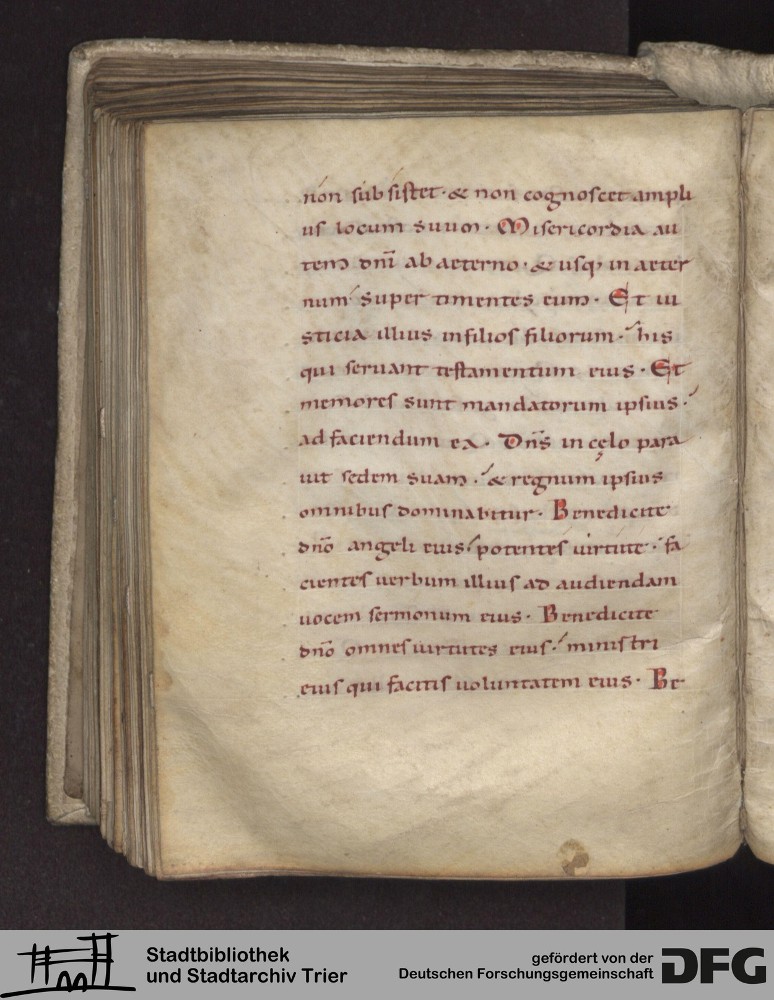 non subsistet · & non cognoscet ampli
us locum suum · Misericordia au
tem dnī ab aeterno · & usq; in aeter
num super timentes eum · Et iu
sticia illius in filios filiorum · his
qui seruant testamentum eius · Et
memores sunt mandatorum ipsius ·
ad faciendum ea · Dns̄ in cęlo para
uit sedem suam · & regnum ipsius
omnibus dominabitur · Benedicite
dnō angeli eius potentes uirtute · fa
cientes uerbum illius ad audiendam
uocem sermonum eius · Benedicite
dnō omnes uirtutes eius · ministri
eius qui facitis uoluntatem eius · Be
Stadtbibliothek
und Stadtarchiv Trier
gefördert von der
Deutschen Forschungsgemeinschaft
DFG